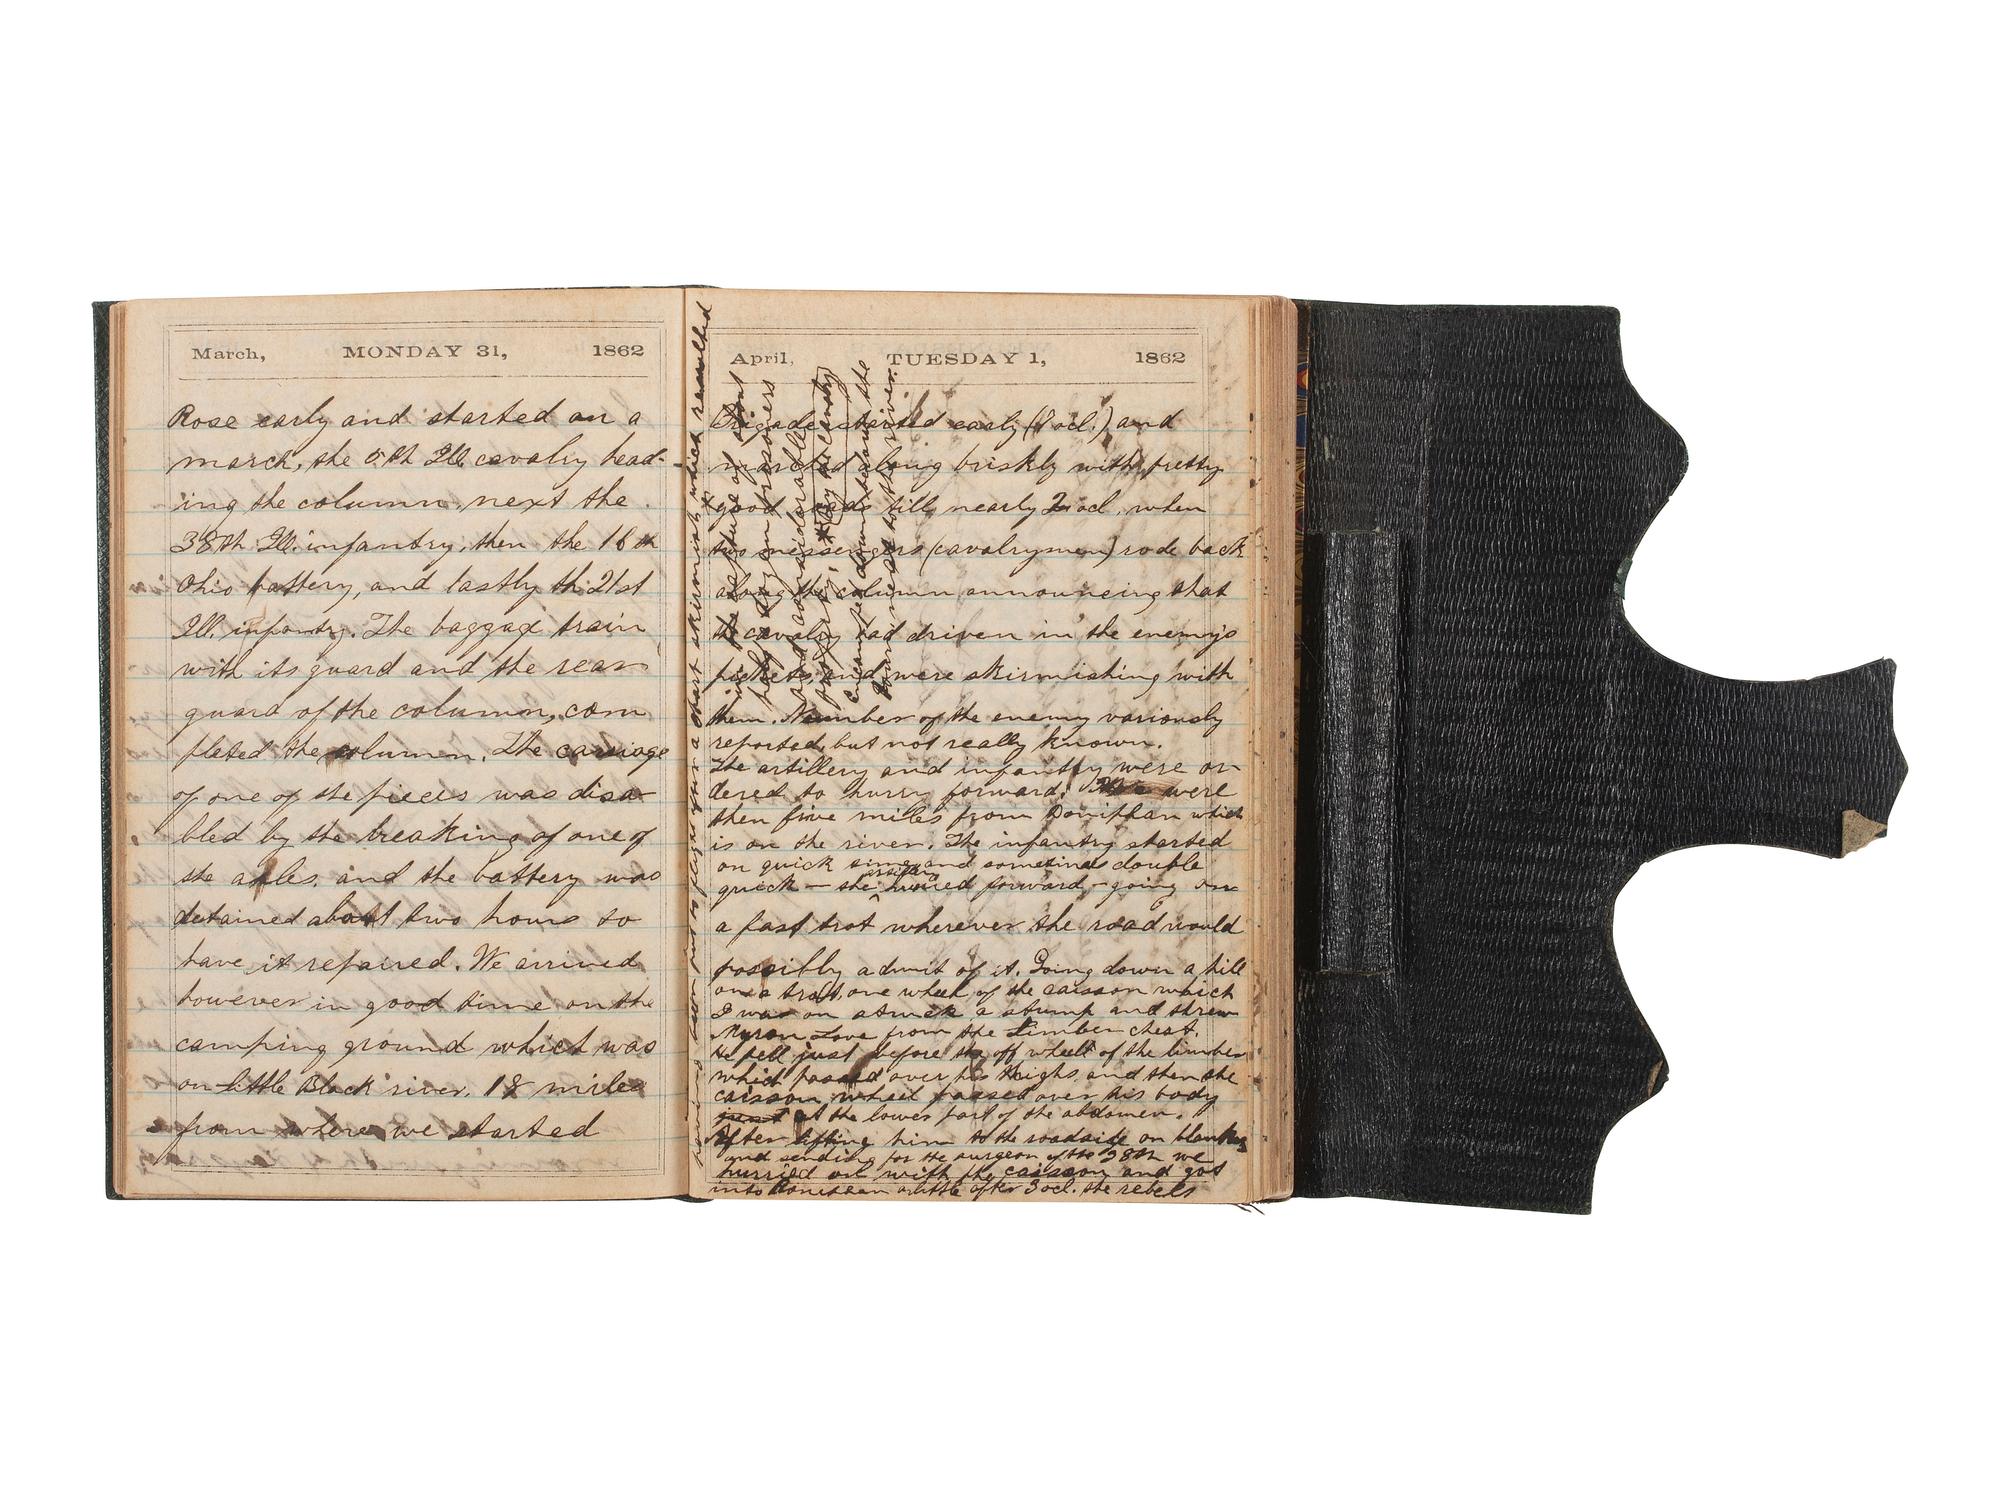 March, MONDAY 31, 1862
Rose early and started on a
march, the 5th Ill. cavalry head-
ing the column, next the
38th Ill. infantry, then the 16th
Ohio battery, and lastly th 21st
Ill. infantry. The baggage train
with its guard and the rear
guard of the column, com
pleted the column. The carriage
of one of the pieces was disa-
bled by the breaking of one of
the axles, and the battery was
detained about two hours to
have it repaired. We arrived
however in good time on the
camping ground which was
on little Black river, 18 miles
from where we started
April, TUESDAY 1, 1862
Brigade started early (7 ocl.) and
marched along briskly with pretty
good roads till nearly 2 ocl, when
two messengers (cavalrymen) rode back
along the column announcing that
the cavalry had driven in the enemy's
pickets, and were skirmishing with
them. Number of the enemy variously
reported, but not really known.
The artillery and infantry were or-
dered to hurry forward. We were
then five miles from Doniphan which
is on the river. The infantry started
on quick time and sometimes double
quick — the artillery hurried forward — going on
a fast trot wherever the road would
possibly admit of it. Going down a hill
on a trot, one wheel of the caisson which
I was on struck a stump and threw
Myron Love from the Limber chest.
He fell just before the off wheel of the limber
which passed over his thighs and then the
caisson wheel passed over his body
just at the lower part of the abdomen.
After lifting him to the roadside on blankets
and sending for the surgeon of the 38th we
hurried on with the caisson and got
into Doniphan a little after 3 ocl. the rebels
having been put to flight after a short skirmish which resulted
in the capture of about
half a dozen prisoners
and considerable
property. * (by the cavalry)
encamped down toward the
river near to the river.